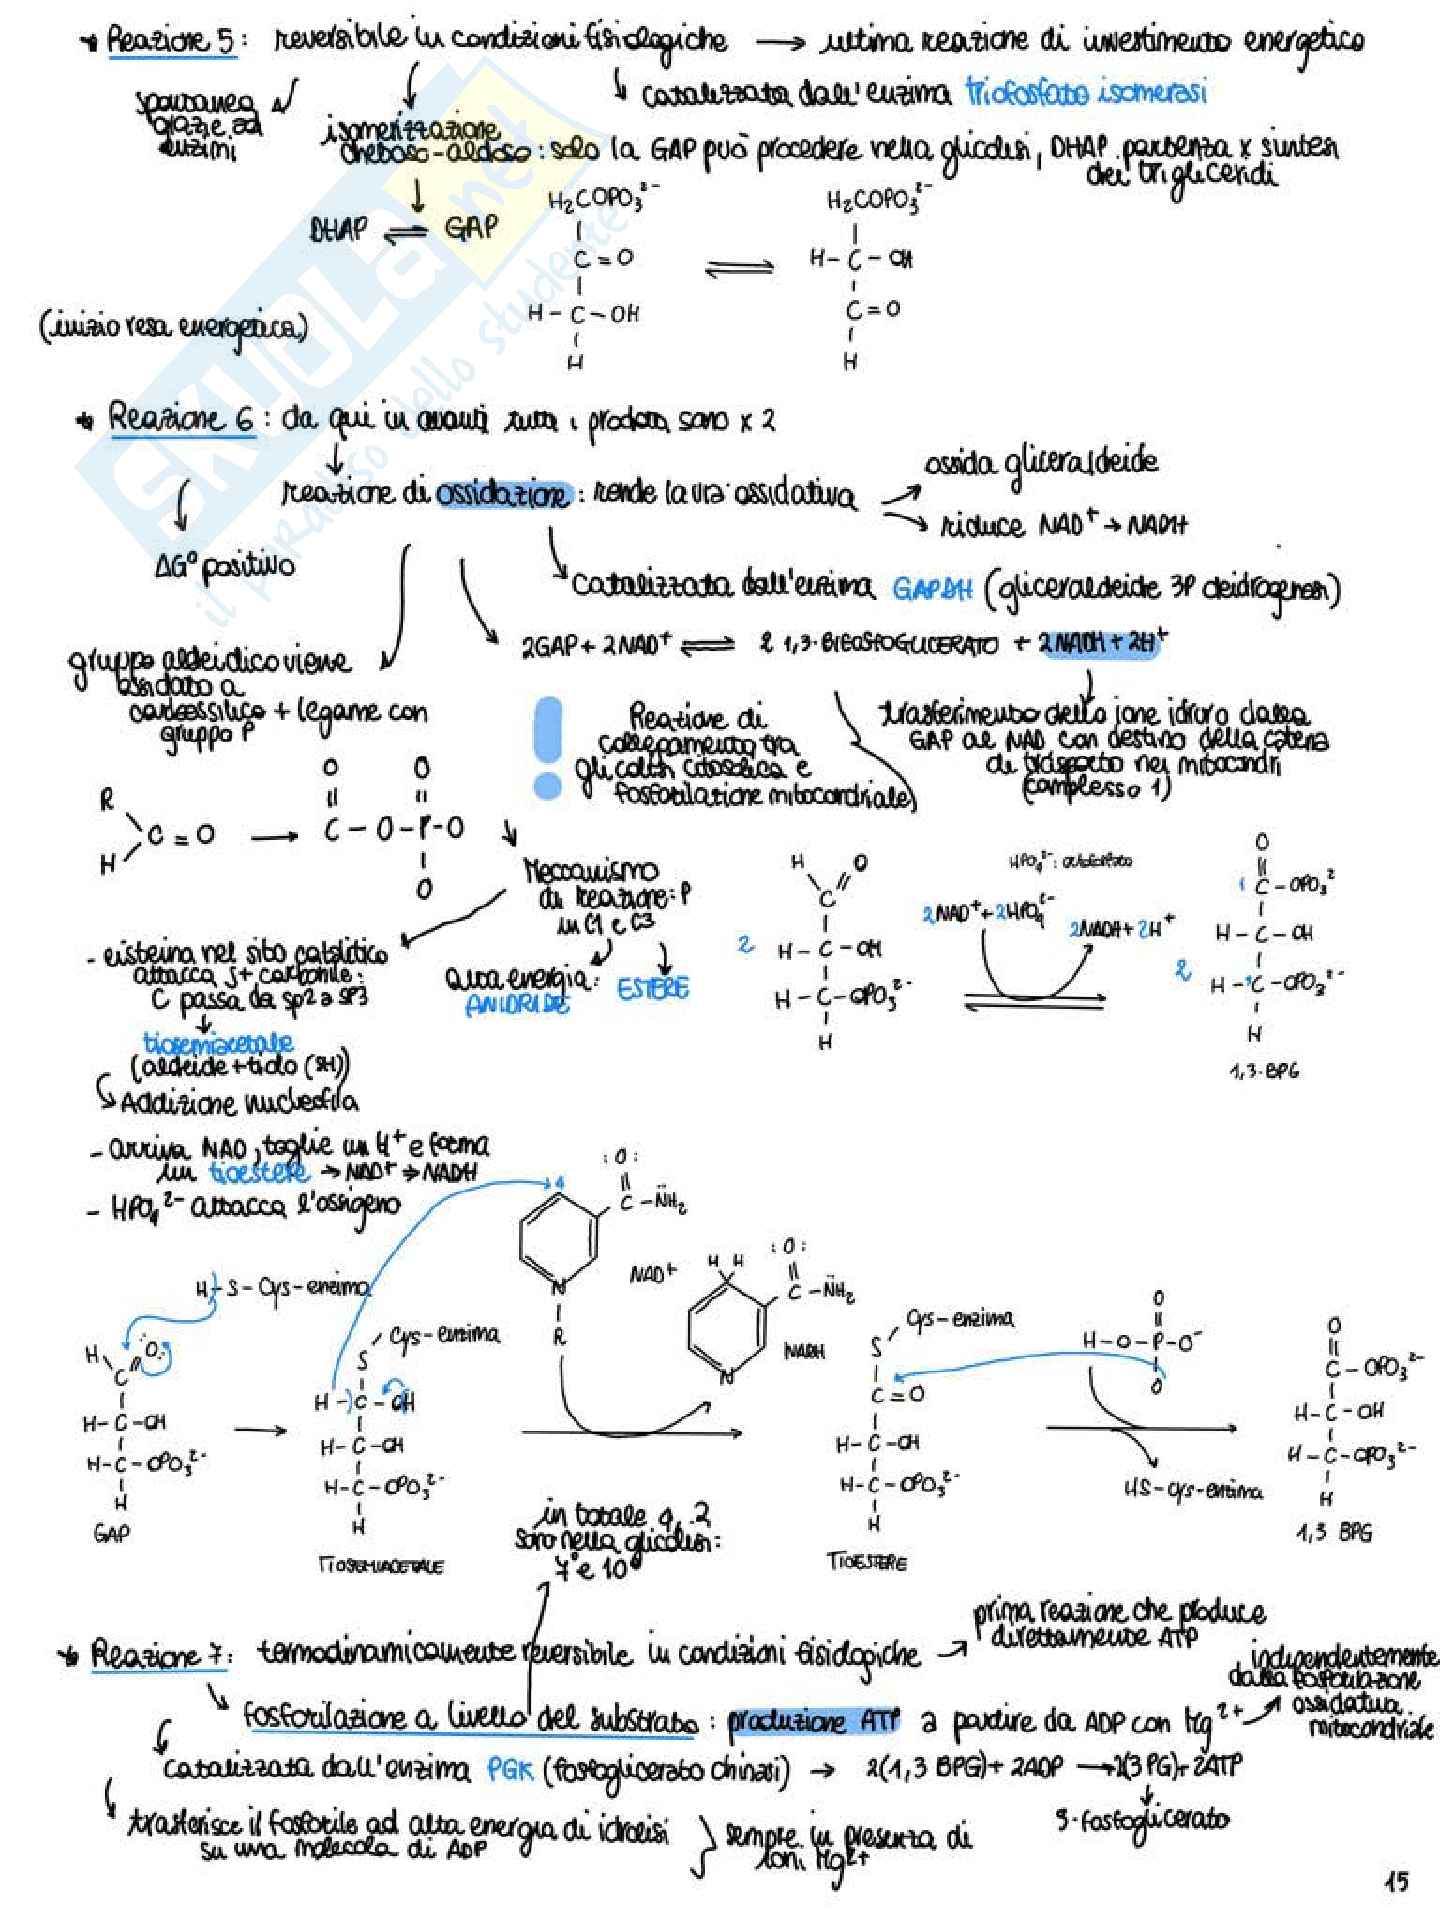 * Reazione 5: reversibile in condizioni fisiologiche → ultima reazione di investimento energetico
↳ catalizzata dall'enzima triofosfato isomerasi
spontanea
grazie ad
enzimi
isomerizzazione
chetoso-aldoso: solo la GAP può procedere nella glicolisi, DHAP partenza x sintesi
dei trigliceridi
DHAP ⇌ GAP
H₂COPO₃²⁻
C=O
H-C-OH
H
⇌
H₂COPO₃²⁻
H-C-OH
C=O
H
(inizio resa energetica)
* Reazione 6: da qui in avanti tutti i prodotti sono x 2
reazione di ossidazione: rende la via ossidativa
ossida gliceraldeide
riduce NAD⁺→NADH
ΔG° positivo
catalizzata dall'enzima GAPDH (gliceraldeide 3P deidrogenasi)
2GAP + 2NAD⁺ ⇌ 2 1,3-BIFOSFOGLICERATO + 2NADH + 2H⁺
gruppo aldeidico viene
ossidato a
carbossilico + legame con
gruppo P
Reazione di
collegamento tra
glicolisi citosolica e
fosforilazione mitocondriale
trasferimento dello ione idruro dalla
GAP al NAD con destino della catena
di trasporto nei mitocondri
(complesso 1)
R
H
C=O → C-O-P-O
O
O
O
Meccanismo
di reazione: P
in C1 e C3
alta energia:
ANIDRIDE
ESTERE
- cisteina nel sito catalitico
attacca δ+ carbonile:
C passa da sp2 a sp3
tiosemiacetale
(aldeide+tiolo (SH))
↳ Addizione nucleofila
- arriva NAD, toglie un H⁺ e forma
un tioestere → NAD⁺ → NADH
- HPO₄²⁻ attacca l'ossigeno
2
H
O
C
H-C-OH
H-C-OPO₃²⁻
H
HPO₄²⁻: ortofosfato
2NAD⁺+2HPO₄²⁻
2NADH+2H⁺
2
O
1 C-OPO₃²
H-C-OH
H-C-OPO₃²⁻
H
1,3-BPG
H-S-Cys-enzima
H
:O:
C
H-C-OH
H-C-OPO₃²⁻
H
GAP
Cys-enzima
S
H-C-OH
H-C-OH
H-C-OPO₃²⁻
H
TIOSEMIACETALE
4
:O:
C-NH₂
N
R
NAD⁺
H H
:O:
C-NH₂
N
NADH
Cys-enzima
S
C=O
H-C-OH
H-C-OPO₃²⁻
H
TIOESTERE
O
H-O-P-O⁻
O
HS-Cys-enzima
O
C-OPO₃²⁻
H-C-OH
H-C-OPO₃²⁻
H
1,3 BPG
in totale 4, 2
sono nella glicolisi:
7° e 10°
* Reazione 7: termodinamicamente reversibile in condizioni fisiologiche
prima reazione che produce
direttamente ATP
↳ fosforilazione a livello del substrato: produzione ATP a partire da ADP con Mg²⁺
independentemente
dalla fosforilazione
ossidativa
mitocondriale
catalizzata dall'enzima PGK (fosfoglicerato chinasi) → 2(1,3 BPG)+ 2ADP → 2(3PG)+2ATP
3-fosfoglicerato
trasferisce il fosforile ad alta energia di idrolisi
su una molecola di ADP
sempre in presenza di
ioni Mg²⁺
15
SKUOLA.net
il paradiso dello studente